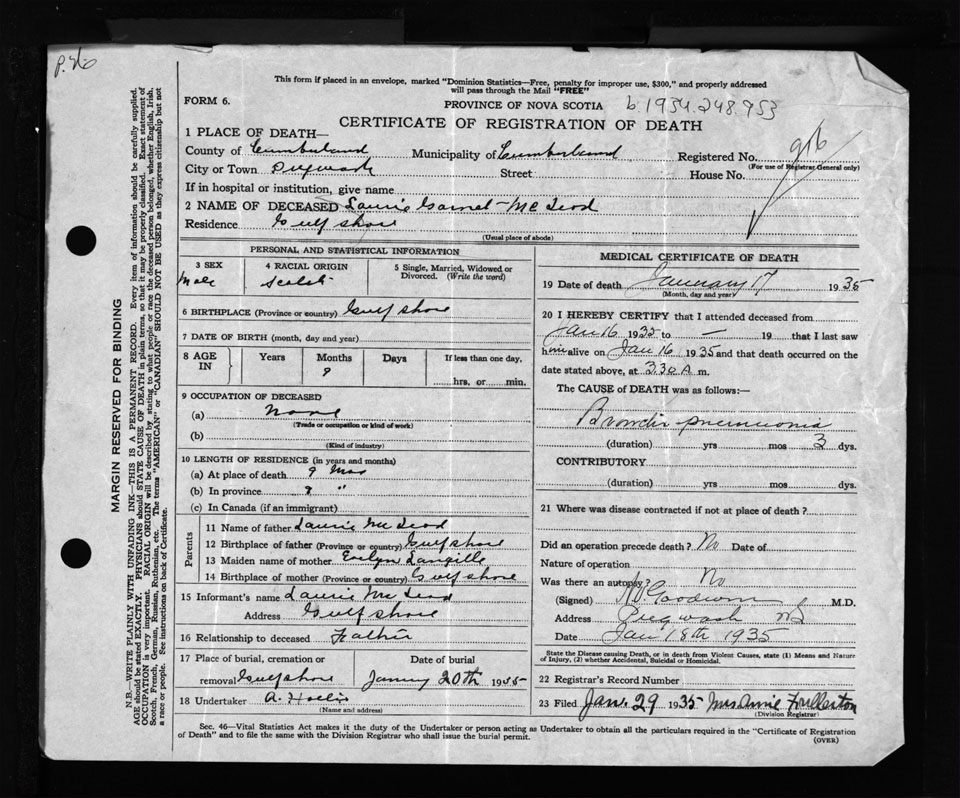 P. 26
This form if placed in an envelope, marked "Dominion Statistics—Free, penalty for improper use, $300," and properly addressed
will pass through the Mail "FREE"
FORM 6.
PROVINCE OF NOVA SCOTIA
b. 1934.248.953
CERTIFICATE OF REGISTRATION OF DEATH
1 PLACE OF DEATH—
County of Cumberland Municipality of Cumberland Registered No. 916
(For use of Registrar General only)
City or Town Pugwash Street House No.
If in hospital or institution, give name
2 NAME OF DECEASED Laurie Garnet McLeod
Residence Gulf Shore
(Usual place of abode)
PERSONAL AND STATISTICAL INFORMATION
3 SEX 4 RACIAL ORIGIN 5 Single, Married, Widowed or
Divorced. (Write the word)
Male Scotch
6 BIRTHPLACE (Province or country) Gulf Shore
7 DATE OF BIRTH (month, day and year)
8 AGE IN Years Months Days If less than one day,
9
hrs. or min.
9 OCCUPATION OF DECEASED
(a) None
(Trade or occupation or kind of work)
(b)
(Kind of industry)
10 LENGTH OF RESIDENCE (in years and months)
(a) At place of death 9 Mos
(b) In province 9 "
(c) In Canada (if an immigrant)
Parents
11 Name of father Laurie McLeod
12 Birthplace of father (Province or country) Gulf Shore
13 Maiden name of mother Evelyn Langille
14 Birthplace of mother (Province or country) Gulf Shore
15 Informant's name Laurie McLeod
Address Gulf Shore
16 Relationship to deceased Father
17 Place of burial, cremation or Date of burial
removal Gulf Shore January 20th 1935
18 Undertaker A.
(Name and address)
MEDICAL CERTIFICATE OF DEATH
19 Date of death January 17 1935
(Month, day and year)
20 I HEREBY CERTIFY that I attended deceased from
Jan 16 1935 to — 19 that I last saw
him alive on Jan 16 1935 and that death occurred on
date stated above, at 3.30 A. m.
The CAUSE of DEATH was as follows:—
Broncho pneumonia
(duration) yrs mos 3 dys.
CONTRIBUTORY
(duration) yrs mos dys.
21 Where was disease contracted if not at place of death?
Did an operation precede death? No Date of
Nature of operation
Was there an autopsy? No
(Signed) Goodwin M.D.
Address Pugwash NS
Date Jan 18th 1935
State the Disease Causing Death, or in death from Violent Causes, state (1) Means and Nature
of Injury, (2) whether Accidental, Suicidal or Homicidal.
22 Registrar's Record Number
23 Filed Jan. 29 1935 Mrs Annie Fullerton
(Division Registrar)
Sec. 46—Vital Statistics Act makes it the duty of the Undertaker or person acting as Undertaker to obtain all the particulars required in the "Certificate of Registration
of Death" and to file the same with the Division Registrar who shall issue the burial permit.
(OVER)
MARGIN RESERVED FOR BINDING
N.B.—WRITE PLAINLY WITH UNFADING INK—THIS IS A PERMANENT RECORD. Every item of information should be carefully supplied.
AGE should be stated EXACTLY. PHYSICIANS should STATE CAUSE OF DEATH in plain terms, so that it may be properly classified. Exact statement of
OCCUPATION is very important. RACIAL ORIGIN will be described by stating to what people or race the deceased person belonged, whether English, Irish,
Scotch, French, German, Russian, Ruthenian, etc. The terms "AMERICAN" or "CANADIAN" SHOULD NOT BE USED as they express citizenship but not
a race or people. See instructions on back of Certificate.